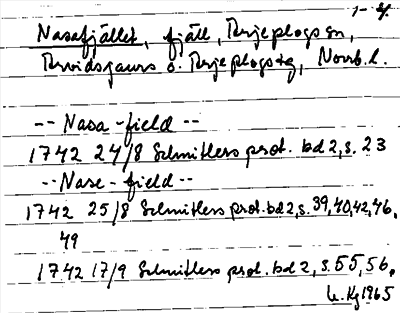 Nasafjället, fjäll, Arjeplogs sn,
Arvidsjaurs o. Arjeplogs tg, Norrb. l.
-- Nasa-field --
1742 24/8 Schnitlers prot. bd 2, s. 23
-- Nase-field --
1742 25/8 Schnitlers prot. bd 2, s. 39, 40, 42, 46,
49
1742 17/9 Schnitlers prot. bd 2, s. 55, 56.
Kg 1965